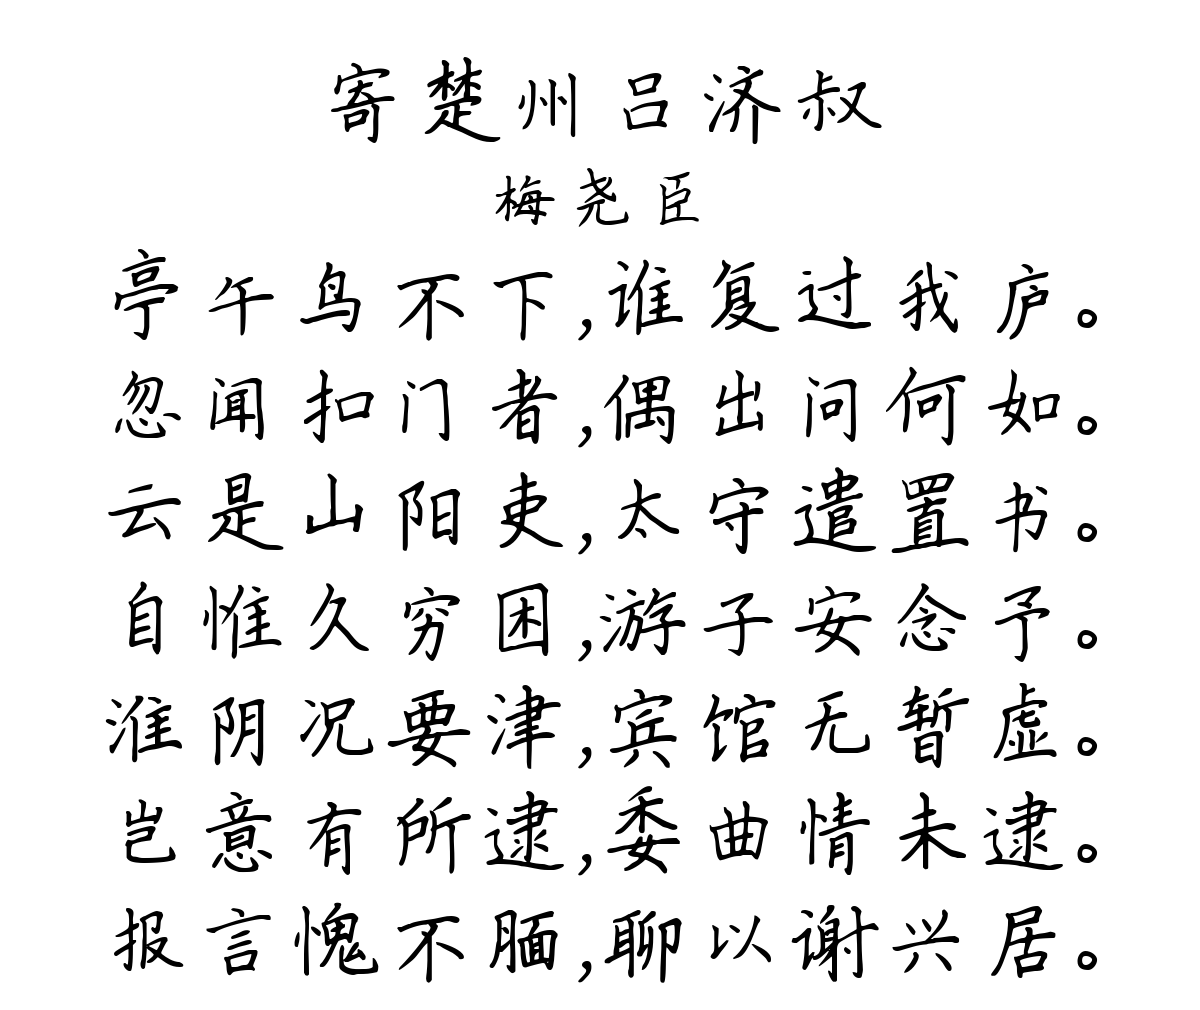 寄楚州吕济叔
梅尧臣
亭午鸟不下,谁复过我庐。
忽闻扣门者,偶出问何如。
云是山阳吏,太守遣置书。
自惟久穷困,游子安念予。
淮阴况要津,宾馆无暂虚。
岂意有所逮,委曲情未逮。
报言愧不腼,聊以谢兴居。